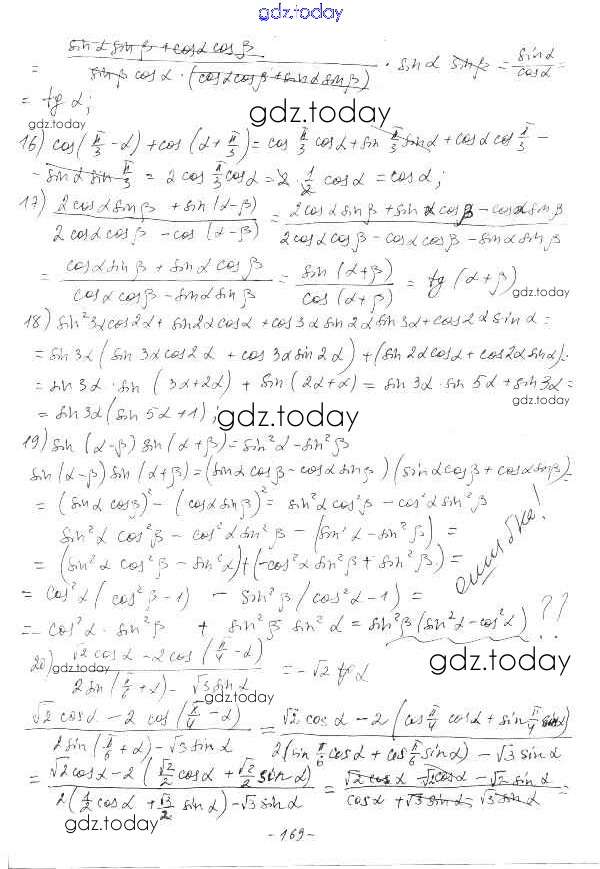 gdz.today
= (sin α sin β + cos α cos β) / (sin β cos α · (cos α cos β + sin α sin β)) · sin α sin β = sin α / cos α =
= tg α;
gdz.today
gdz.today
16) cos(π/3 - α) + cos(α + π/3) = cos π/3 cos α + sin π/3 sin α + cos α cos π/3 -
- sin α sin π/3 = 2 cos π/3 cos α = 2 · 1/2 cos α = cos α;
17) (2 cos α sin β + sin(α - β)) / (2 cos α cos β - cos(α - β)) = (2 cos α sin β + sin α cos β - cos α sin β) / (2 cos α cos β - cos α cos β - sin α sin β)
= (cos α sin β + sin α cos β) / (cos α cos β - sin α sin β) = sin(α + β) / cos(α + β) = tg(α + β)
gdz.today
18) sin² 3α cos 2α + sin 2α cos α + cos 3α sin 2α sin 3α + cos 2α sin α =
= sin 3α (sin 3α cos 2α + cos 3α sin 2α) + (sin 2α cos α + cos 2α sin α) =
= sin 3α · sin (3α + 2α) + sin (2α + α) = sin 3α · sin 5α + sin 3α =
= sin 3α (sin 5α + 1);
gdz.today
gdz.today
19) sin (α - β) sin (α + β) = sin² α - sin² β
sin (α - β) sin (α + β) = (sin α cos β - cos α sin β) (sin α cos β + cos α sin β) =
= (sin α cos β)² - (cos α sin β)² = sin² α cos² β - cos² α sin² β
sin² α cos² β - cos² α sin² β - (sin² α - sin² β) =
= (sin² α cos² β - sin² α) + (-cos² α sin² β + sin² β) =
= cos² α (cos² β - 1) - sin² β (cos² α - 1) =
= - cos² α · sin² β + sin² β sin² α = sin² β (sin² α - cos² α) ??
ошибка!
gdz.today
20) (√2 cos α - 2 cos (π/4 - α)) / (2 sin (π/6 + α) - √3 sin α) = - √2 tg α
gdz.today
(√2 cos α - 2 cos (π/4 - α)) / (2 sin (π/6 + α) - √3 sin α) = (√2 cos α - 2 (cos π/4 cos α + sin π/4 sin α)) / (2 (sin π/6 cos α + cos π/6 sin α) - √3 sin α)
= (√2 cos α - 2 (√2/2 cos α + √2/2 sin α)) / (2 (1/2 cos α + √3/2 sin α) - √3 sin α) = (√2 cos α - √2 cos α - √2 sin α) / (cos α + √3 sin α - √3 sin α) =
gdz.today
gdz.today
- 169 -